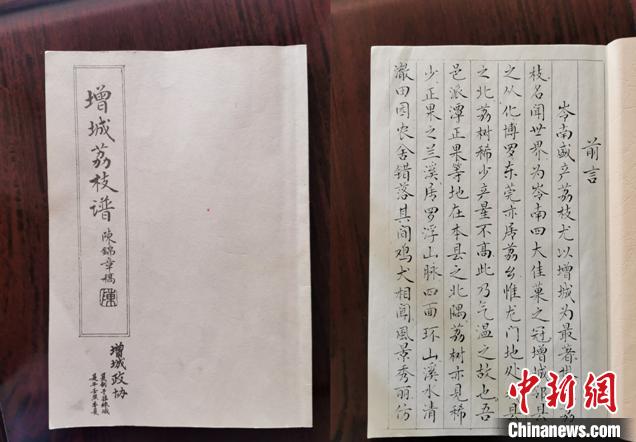 增城荔枝谱
陳錦章稿
陳
增城政协
前言
岺南盛产荔枝尤以增城为最著
枝名闻世界为岺南四大佳菓之冠增城邻县
之从化博罗东莞亦居荔乡惟龙门地处 县
之北荔树稀少产量不高此乃气温之故也吾
邑派潭正果等地在本县之北隅荔树亦见稀
少正果之兰溪居罗浮山脉四面环山溪水清
澈田园农舍错落其间鸡犬相闻風景秀丽仿
中新网
Chinanews.com